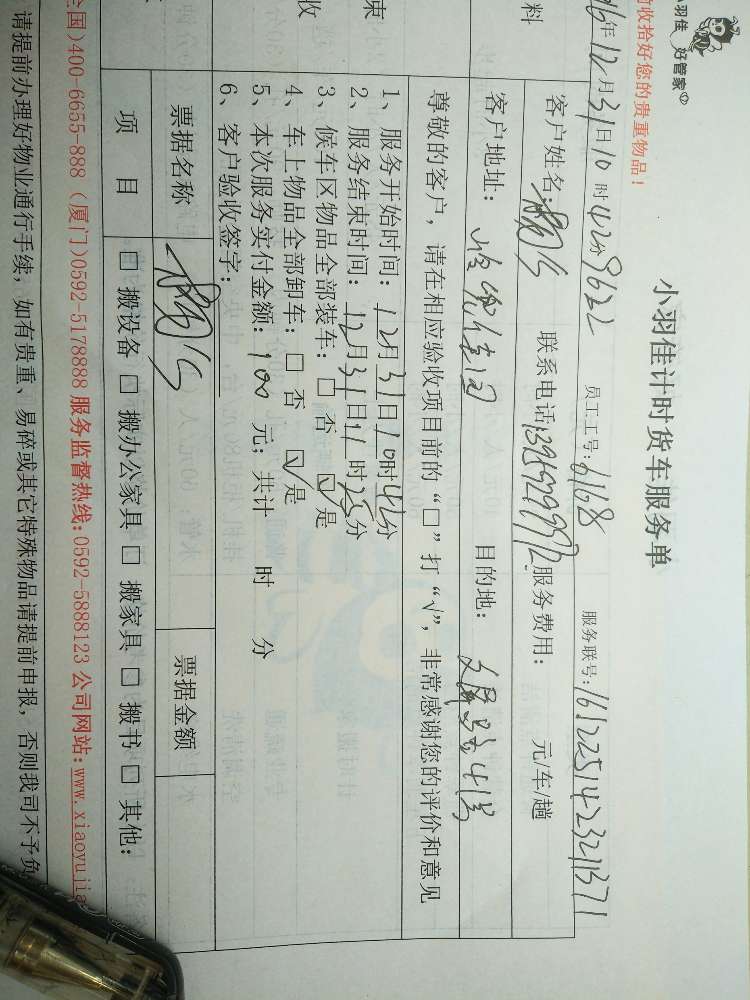 小羽佳 好管家
小羽佳计时货车服务单
前收拾好您的贵重物品！
16年12月31日10时42分 9622 员工工号: 6168 服务联号: 1612251423211371
客户姓名: 联系电话 服务费用: 元/车/趟
客户地址: 目的地: 41号
料
尊敬的客户，请在相应验收项目前的“□”打“√”，非常感谢您的评价和意见
1、服务开始时间: 12月31日10时42分
2、服务结束时间: 12月31日11时25分
3、候车区物品全部装车: □ 否 ☑ 是
4、车上物品全部卸车: □ 否 ☑ 是
5、本次服务实付金额: 100 元; 共计 时 分
6、客户验收签字:
束
收
票据名称 票据金额
项 目 □ 搬设备 □ 搬办公家具 □ 搬家具 □ 搬书 □ 其他:
全国)400-6655-888 (厦门)0592-5178888 服务监督热线: 0592-5888123 公司网站: www.xiaoyujia
请提前办理好物业通行手续，如有贵重、易碎或其它特殊物品请提前申报，否则我司不予负